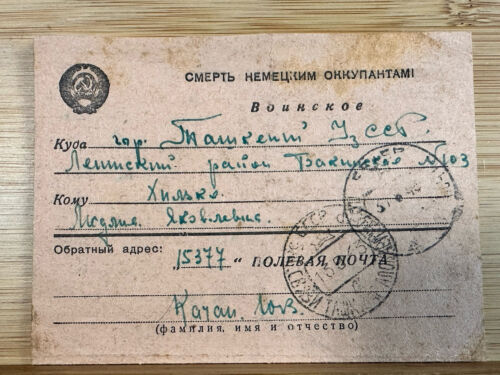 СМЕРТЬ НЕМЕЦКИМ ОККУПАНТАМ!
Воинское
Куда гор. Ташкент УзССР.
Ленинский район №103
Кому Хилько
Лидия Яковлевна.
Обратный адрес:
"15377" ПОЛЕВАЯ ПОЧТА
Качан Ю.В.
(фамилия, имя и отчество)